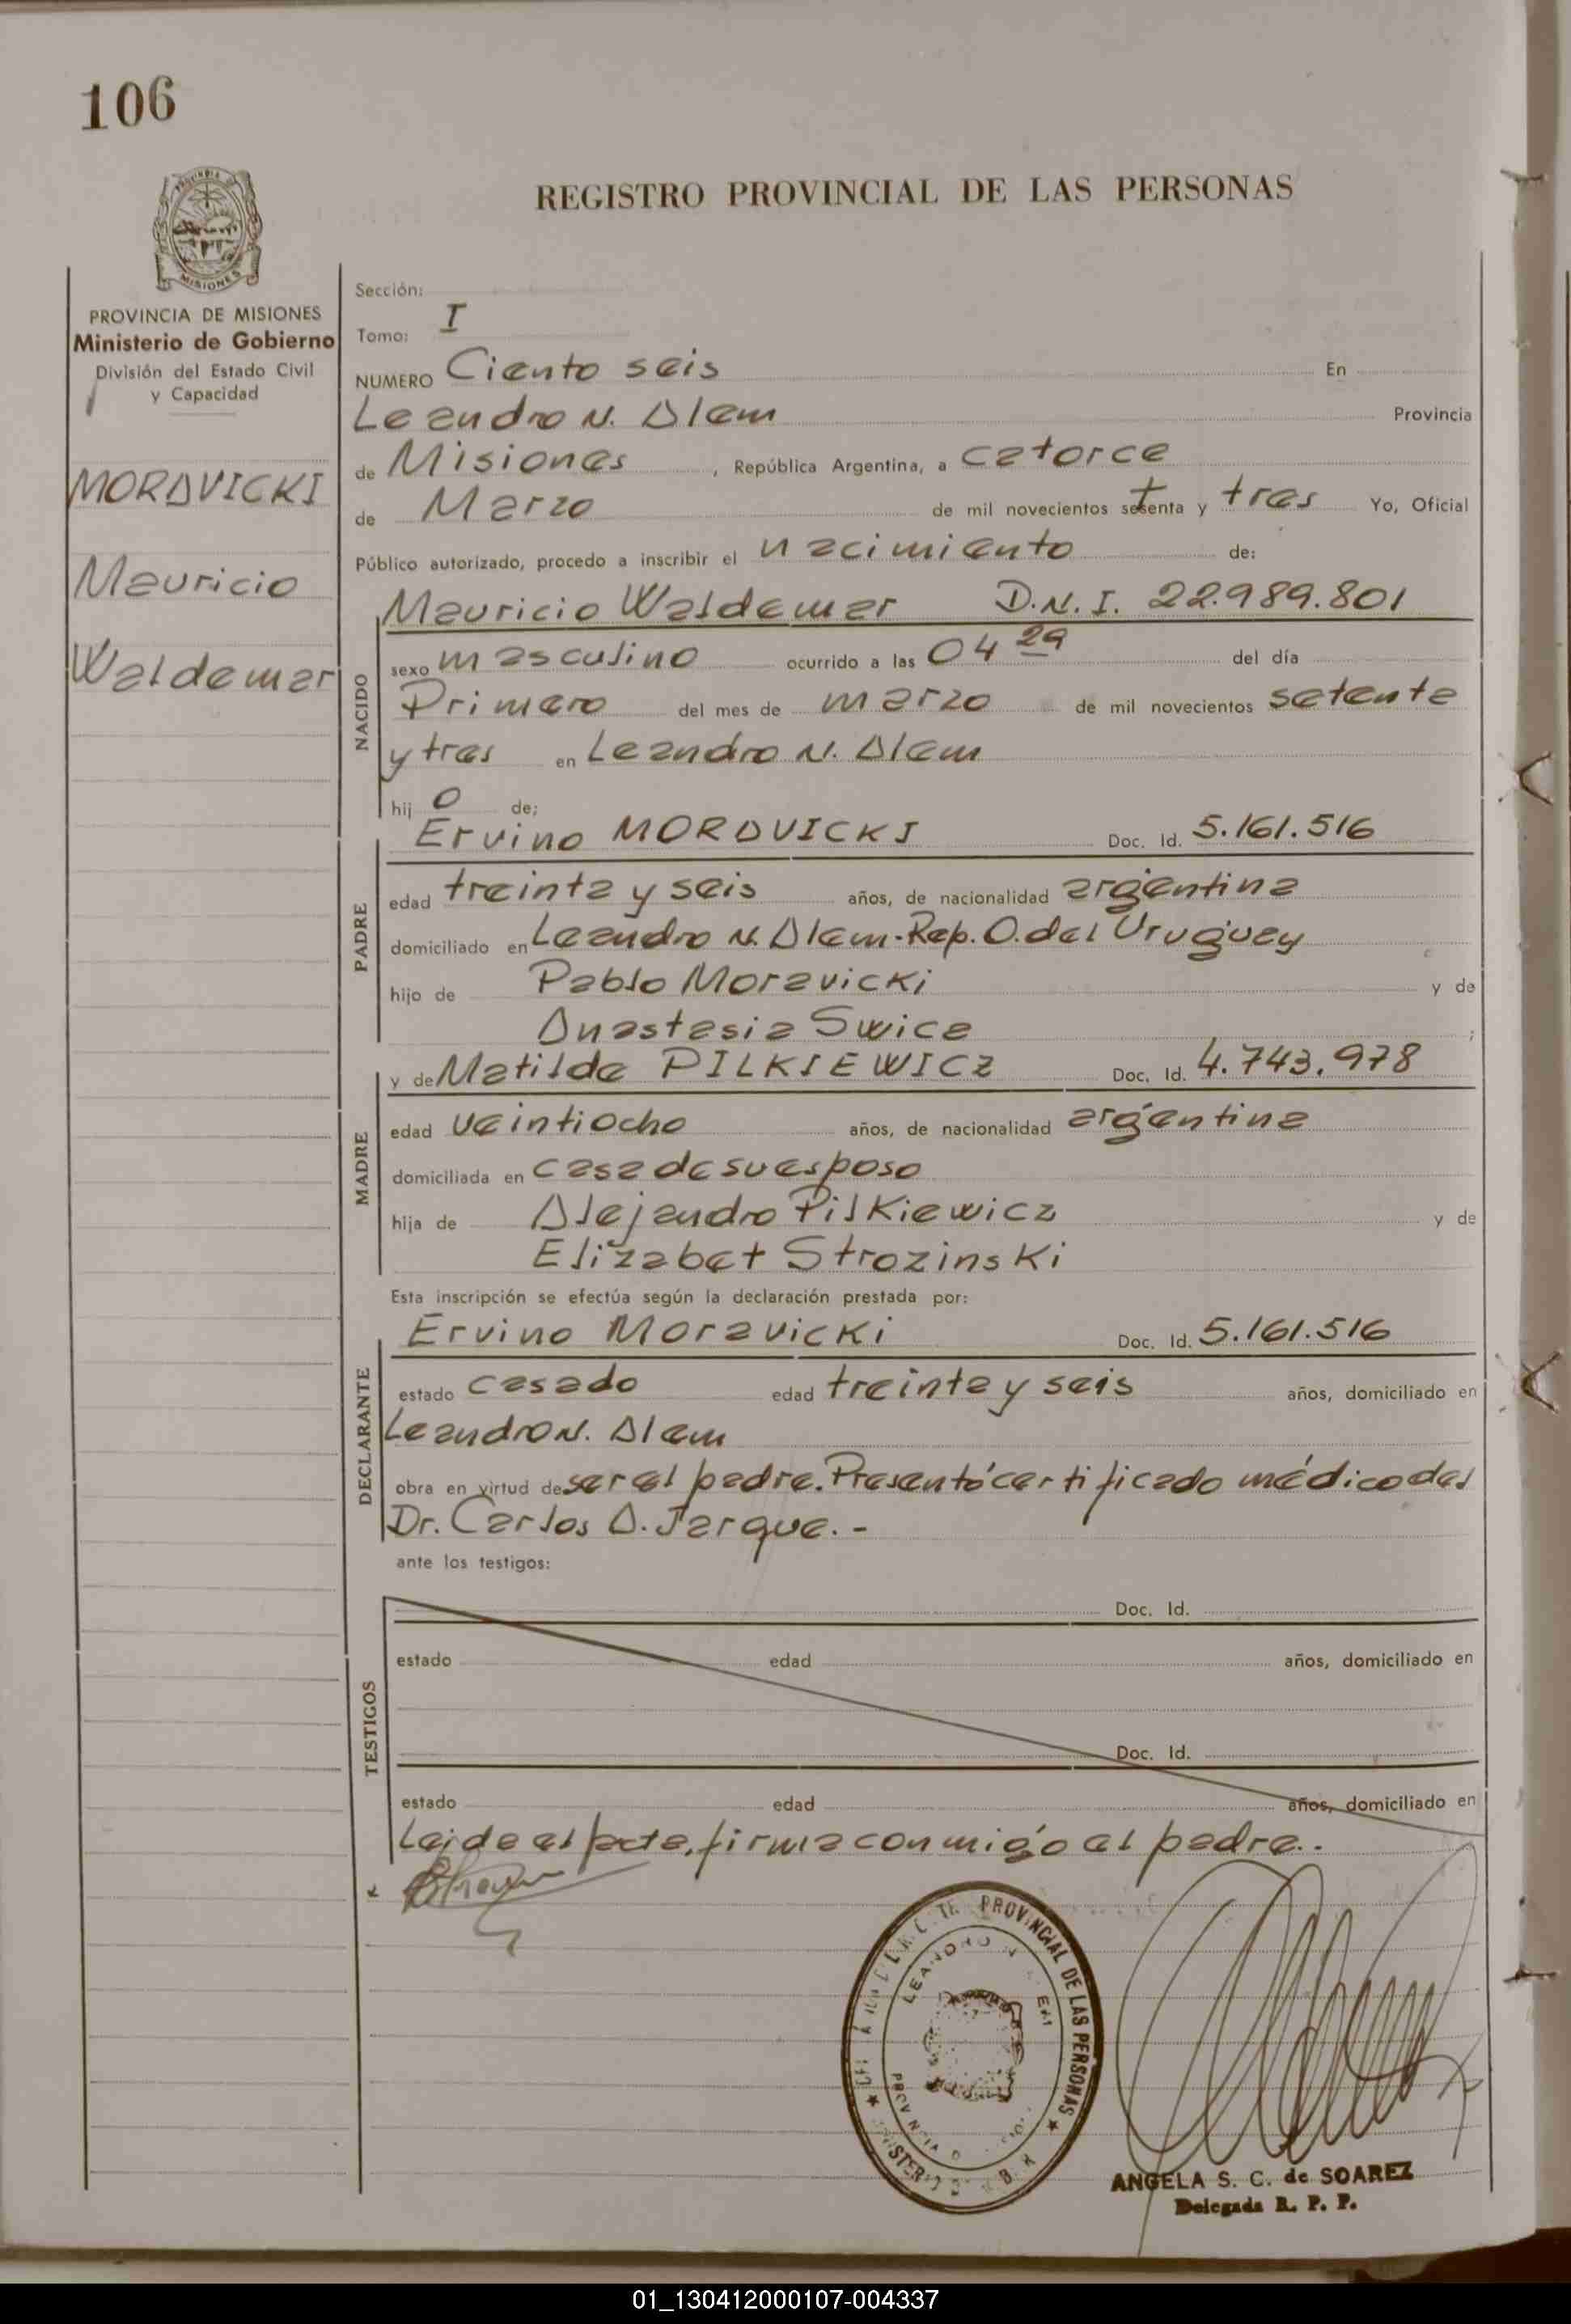 106
PROVINCIA DE MISIONES
Ministerio de Gobierno
División del Estado Civil
y Capacidad
MORAVICKI
Mauricio
Waldemar
REGISTRO PROVINCIAL DE LAS PERSONAS
Sección:
Tomo: I
NUMERO Ciento seis En
Leandro N. Alem Provincia
de Misiones, República Argentina, a catorce
de Marzo de mil novecientos setenta y tres Yo, Oficial
Público autorizado, procedo a inscribir el nacimiento de:
NACIDO
Mauricio Waldemar D.N.I. 22.989.801
sexo masculino ocurrido a las 04 29 del día
Primero del mes de marzo de mil novecientos setenta
y tres en Leandro N. Alem
hijo de;
PADRE
Ervino MORAVICKI Doc. Id. 5.161.516
edad treinta y seis años, de nacionalidad argentina
domiciliado en Leandro N. Alem-Rep. O. del Uruguay
hijo de Pablo Moravicki y de
Anastasia Swica;
MADRE
y de Matilde PILKIEWICZ Doc. Id. 4.743.978
edad veintiocho años, de nacionalidad argentina
domiciliada en casa de su esposo
hija de Alejandro Pilkiewicz y de
Elizabet Strozinski
Esta inscripción se efectúa según la declaración prestada por:
DECLARANTE
Ervino Moravicki Doc. Id. 5.161.516
estado casado edad treinta y seis años, domiciliado en
Leandro N. Alem
obra en virtud de ser el padre. Presentó certificado médico del
Dr. Carlos A. Jarque.-
ante los testigos:
TESTIGOS
Doc. Id.
estado edad años, domiciliado en
Doc. Id.
estado edad años, domiciliado en
Leida el acta, firma conmigo el padre.-
PROVINCIAL DE LAS PERSONAS
LEANDRO N.
ANGELA S. C. de SOAREZ
Delegada R. P. P.
01_130412000107-004337